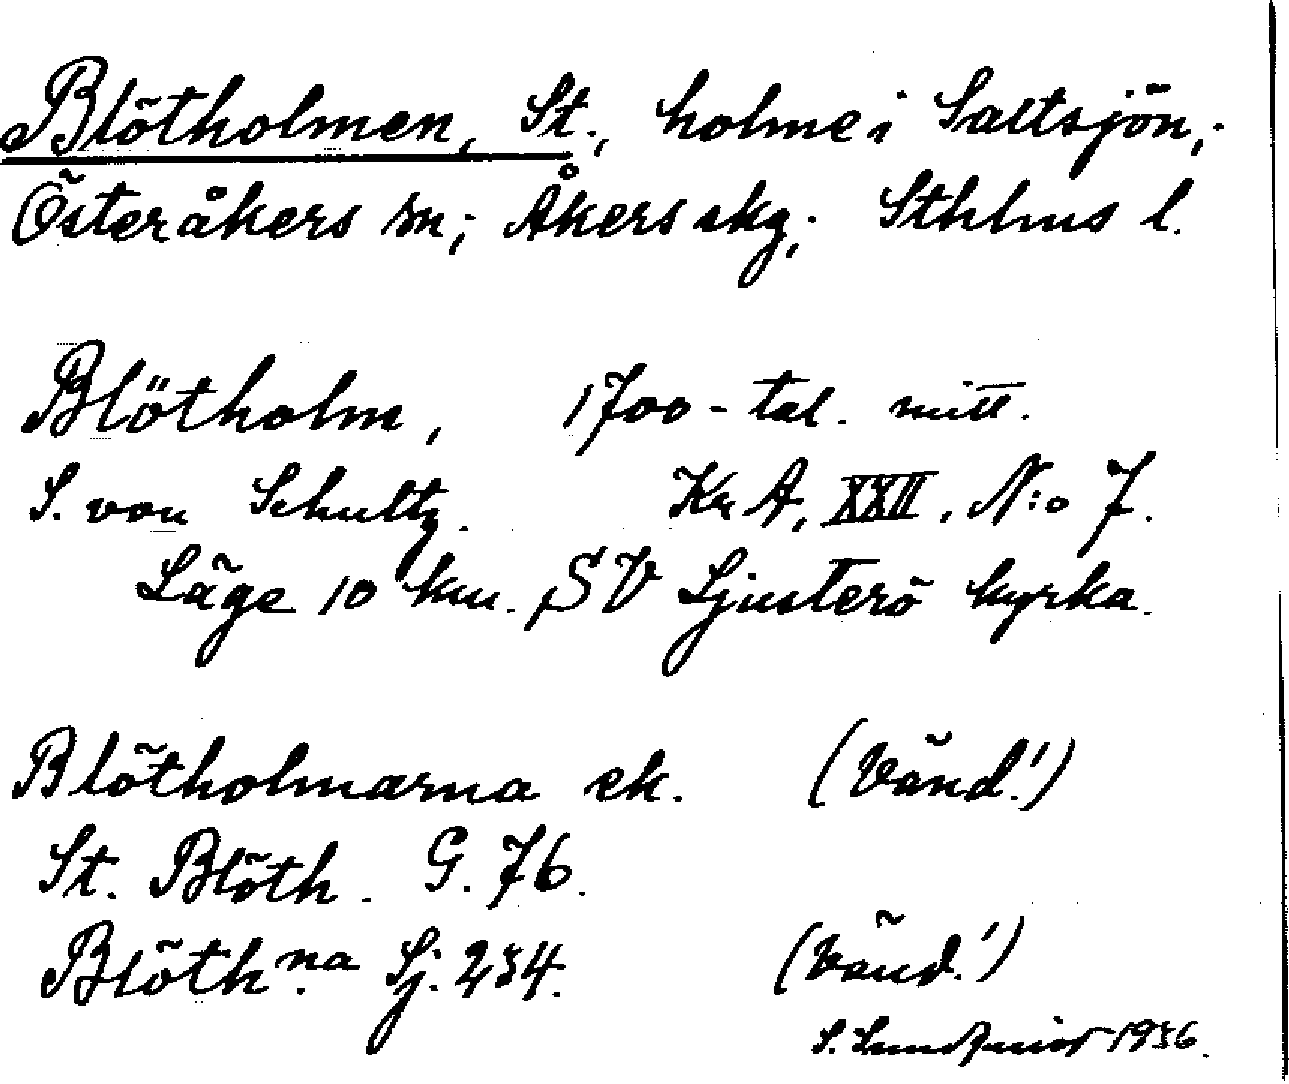 Blötholmen, St., holme i Saltsjön,
Österåkers sn; Åkers skg; Sthlms l.
Blötholm, 1700-tal. mitt.
S. von Schultz. Kr A, XXII, N:o 7.
Läge 10 km. SV Ljusterö kyrka.
Blötholmarna ek. (Vänd!)
St. Blöth. G. 76.
Blöth.na Sj. 234. (Vänd!)
S. 1936.